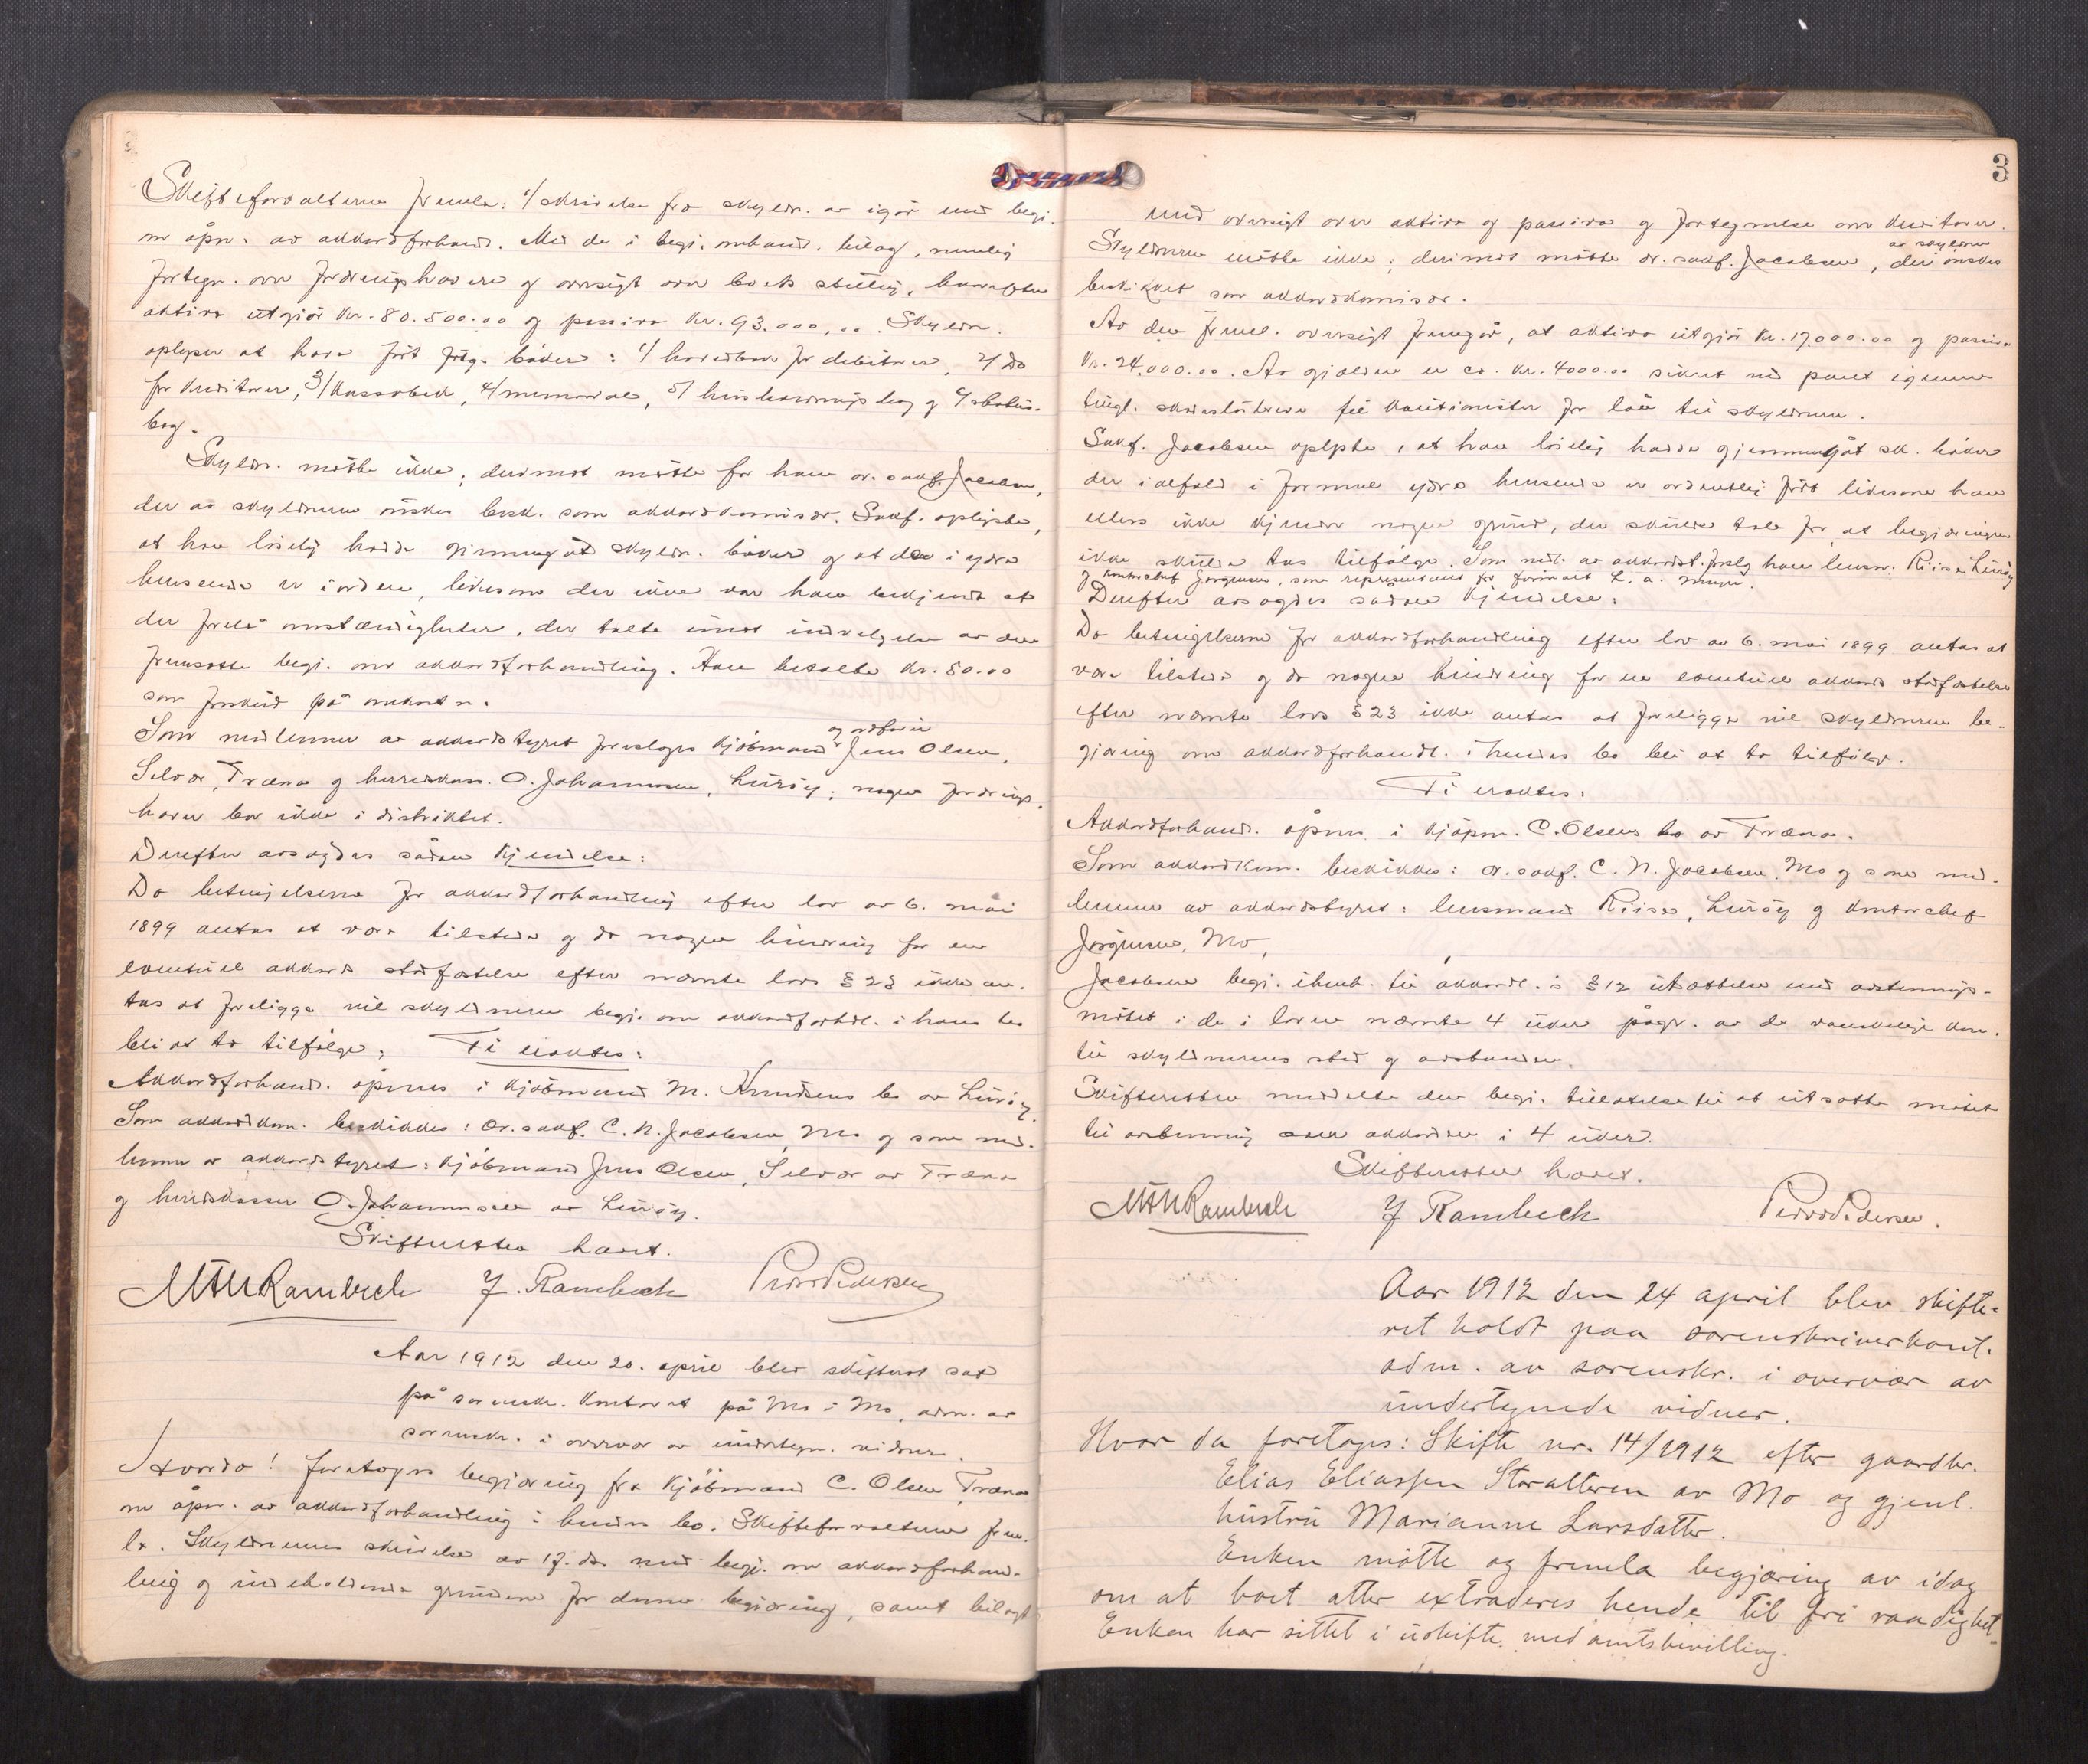 Skifteforvalteren fremla: 1/ skrivelse fra skyldn. av igår med begj.
om åpn. av akkordforhandl. Med de i begj. omhandl. bilag, nemlig
fortegn. over fordringshavere og oversigt over boets stilling, hvorefter
aktiva utgjör kr. 80.500.00 og passiva kr. 93.000,00. Skyldn.
oplyser at have fört fölg. böker: 1/ hovedbok for debitorer, 2/ do
for kreditorer, 3/ kassabok, 4/ memorial, 5/ husholdningsbog og 6/ status-
bog.
Skyldn. mötte ikke; derimot mötte for ham or. sakf. Jacobsen,
der av skyldneren önskes besk. som akkordkommisær. Sakf. oplyste,
at han löselig hadde gjennemgåt skyldn. böker og at de i ydre
henseende er i orden, likesom der ikke var ham bekjendt at
der forelå omstændigheter, der talte imot indvilgelse av den
fremsatte begj. om akkordforhandling. Han betalte kr. 50.00
som forskud på omkostn.
Som medlemmer av akkordstyret foresloges kjöbmand og ordförer Jens Olsen,
Selvær, Træna og herredskass. O. Johannesen, Luröy; nogen fordrings-
haver bor ikke i distriktet.
Derefter avsagdes sådan kjendelse:
Da betingelserne for akkordforhandling efter lov av 6. mai
1899 antas at være tilstede og da nogen hindring for en
eventuel akkords stadfæstelse efter nævnte lovs § 23 ikke an-
tas at foreligge vil skyldneren begj. om akkordforhdl. i hans bo
bli at ta tilfölge; Ti eragtes:
Akkordforhandl. åpnes i kjöbmand M. Knudsens bo av Luröy.
Som akkordkom. beskikkes: Or. sakf. C. N. Jacobsen, Mo og som med-
lemmer av akkordstyret: kjöbmand Jens Olsen, Selvær av Træna
og herredskasser O. Johannesen av Luröy.
Skifteretten hævet.
Rambech J. Rambech Peder Pedersen
Aar 1912 den 20. april blev skifteret sat
på sorenskr. kontoret på Mo i Mo, adm. av
sorenskr. i overvær av undertegn. vidner.
Hvorda! foretoges begjæring fra kjöbmand C. Olsen, Træna
om åpn. av akkordforhandling i hendes bo. Skifteforvalteren frem-
la. Skyldnerens skrivelse av 17. ds. med begj. om akkordforhand-
ling og indeholdende grundene for denne begjæring, samt bilagt
3
med oversigt over aktiva og passiva og fortegnelse over kreditorer.
Skyldneren mötte ikke; derimot mötte or. sakf. Jacobsen, der av skyldneren önskes
beskikket som akkordkomisær.
Av den freml. oversigt fremgår, at aktiva utgjör kr. 17.000.00 og passiva
kr. 24.000.00. Av gjælden er ca. kr. 4000.00 sikret ved pant igjennem
tingl. skadeslösbreve til kautionister for lån til skyldneren.
Sakf. Jacobsen oplyste, at han löselig hadde gjennemgåt sk. böker
der ialfald i formel ydre henseende er ordentlig fört likesom han
ellers ikke kjender nogen grund, der skulde tale for, at begjæringen
ikke skulde tas tilfölge. Som medl. av akkordst. foreslog han lensm. Riise, Luröy
og kontorchef Jörgensen, som repræsentant for firmaet L. A. Meyer.
Derefter avsagdes sådan kjendelse:
Da betingelserne for akkordforhandling efter lov av 6. mai 1899 antas at
være tilstede og da nogen hindring for en eventuel akkords stadfæstelse
efter nævnte lovs § 23 ikke antas at foreligge vil skyldneren be-
gjæring om akkordforhandl. i hendes bo bli at ta tilfölge.
Ti eragtes:
Akkordforhandl. åpnes i kjöpm. C. Olsens bo av Træna.
Som akkordkom. beskikkes: or. sakf. C. N. Jacobsen, Mo og som med-
lemmer av akkordstyret: lensmand Riise, Luröy og kontorchef
Jörgensen, Mo,
Jacobsen begj. ihenh. til akkordl. s § 12 utsættelse med avstemnings-
mötet i de i loven nævnte 4 uker pågr. av de vanskelige kom.
til skyldnerens sted og avstanden.
Skifteretten meddelte den begj. tillatelse til at utsætte mötet
til avstemning over akkorden i 4 uker.
Skifteretten hævet.
Rambech J Rambech Peder Pedersen.
Aar 1912 den 24 april blev skifte-
ret holdt paa sorenskriverkont.
adm. av sorenskr. i overvær av
undertegnede vidner.
Hvor da foretoges: Skifte nr. 14/1912 efter gaardbr.
Elias Eliassen Storalteren av Mo og gjenl.
hustru Marianne Larsdatter.
Enken mötte og fremla begjæring av idag
om at boet atter extraderes hende til fri raadighet.
Enken har sittet i uskifte med amtsbevilling.